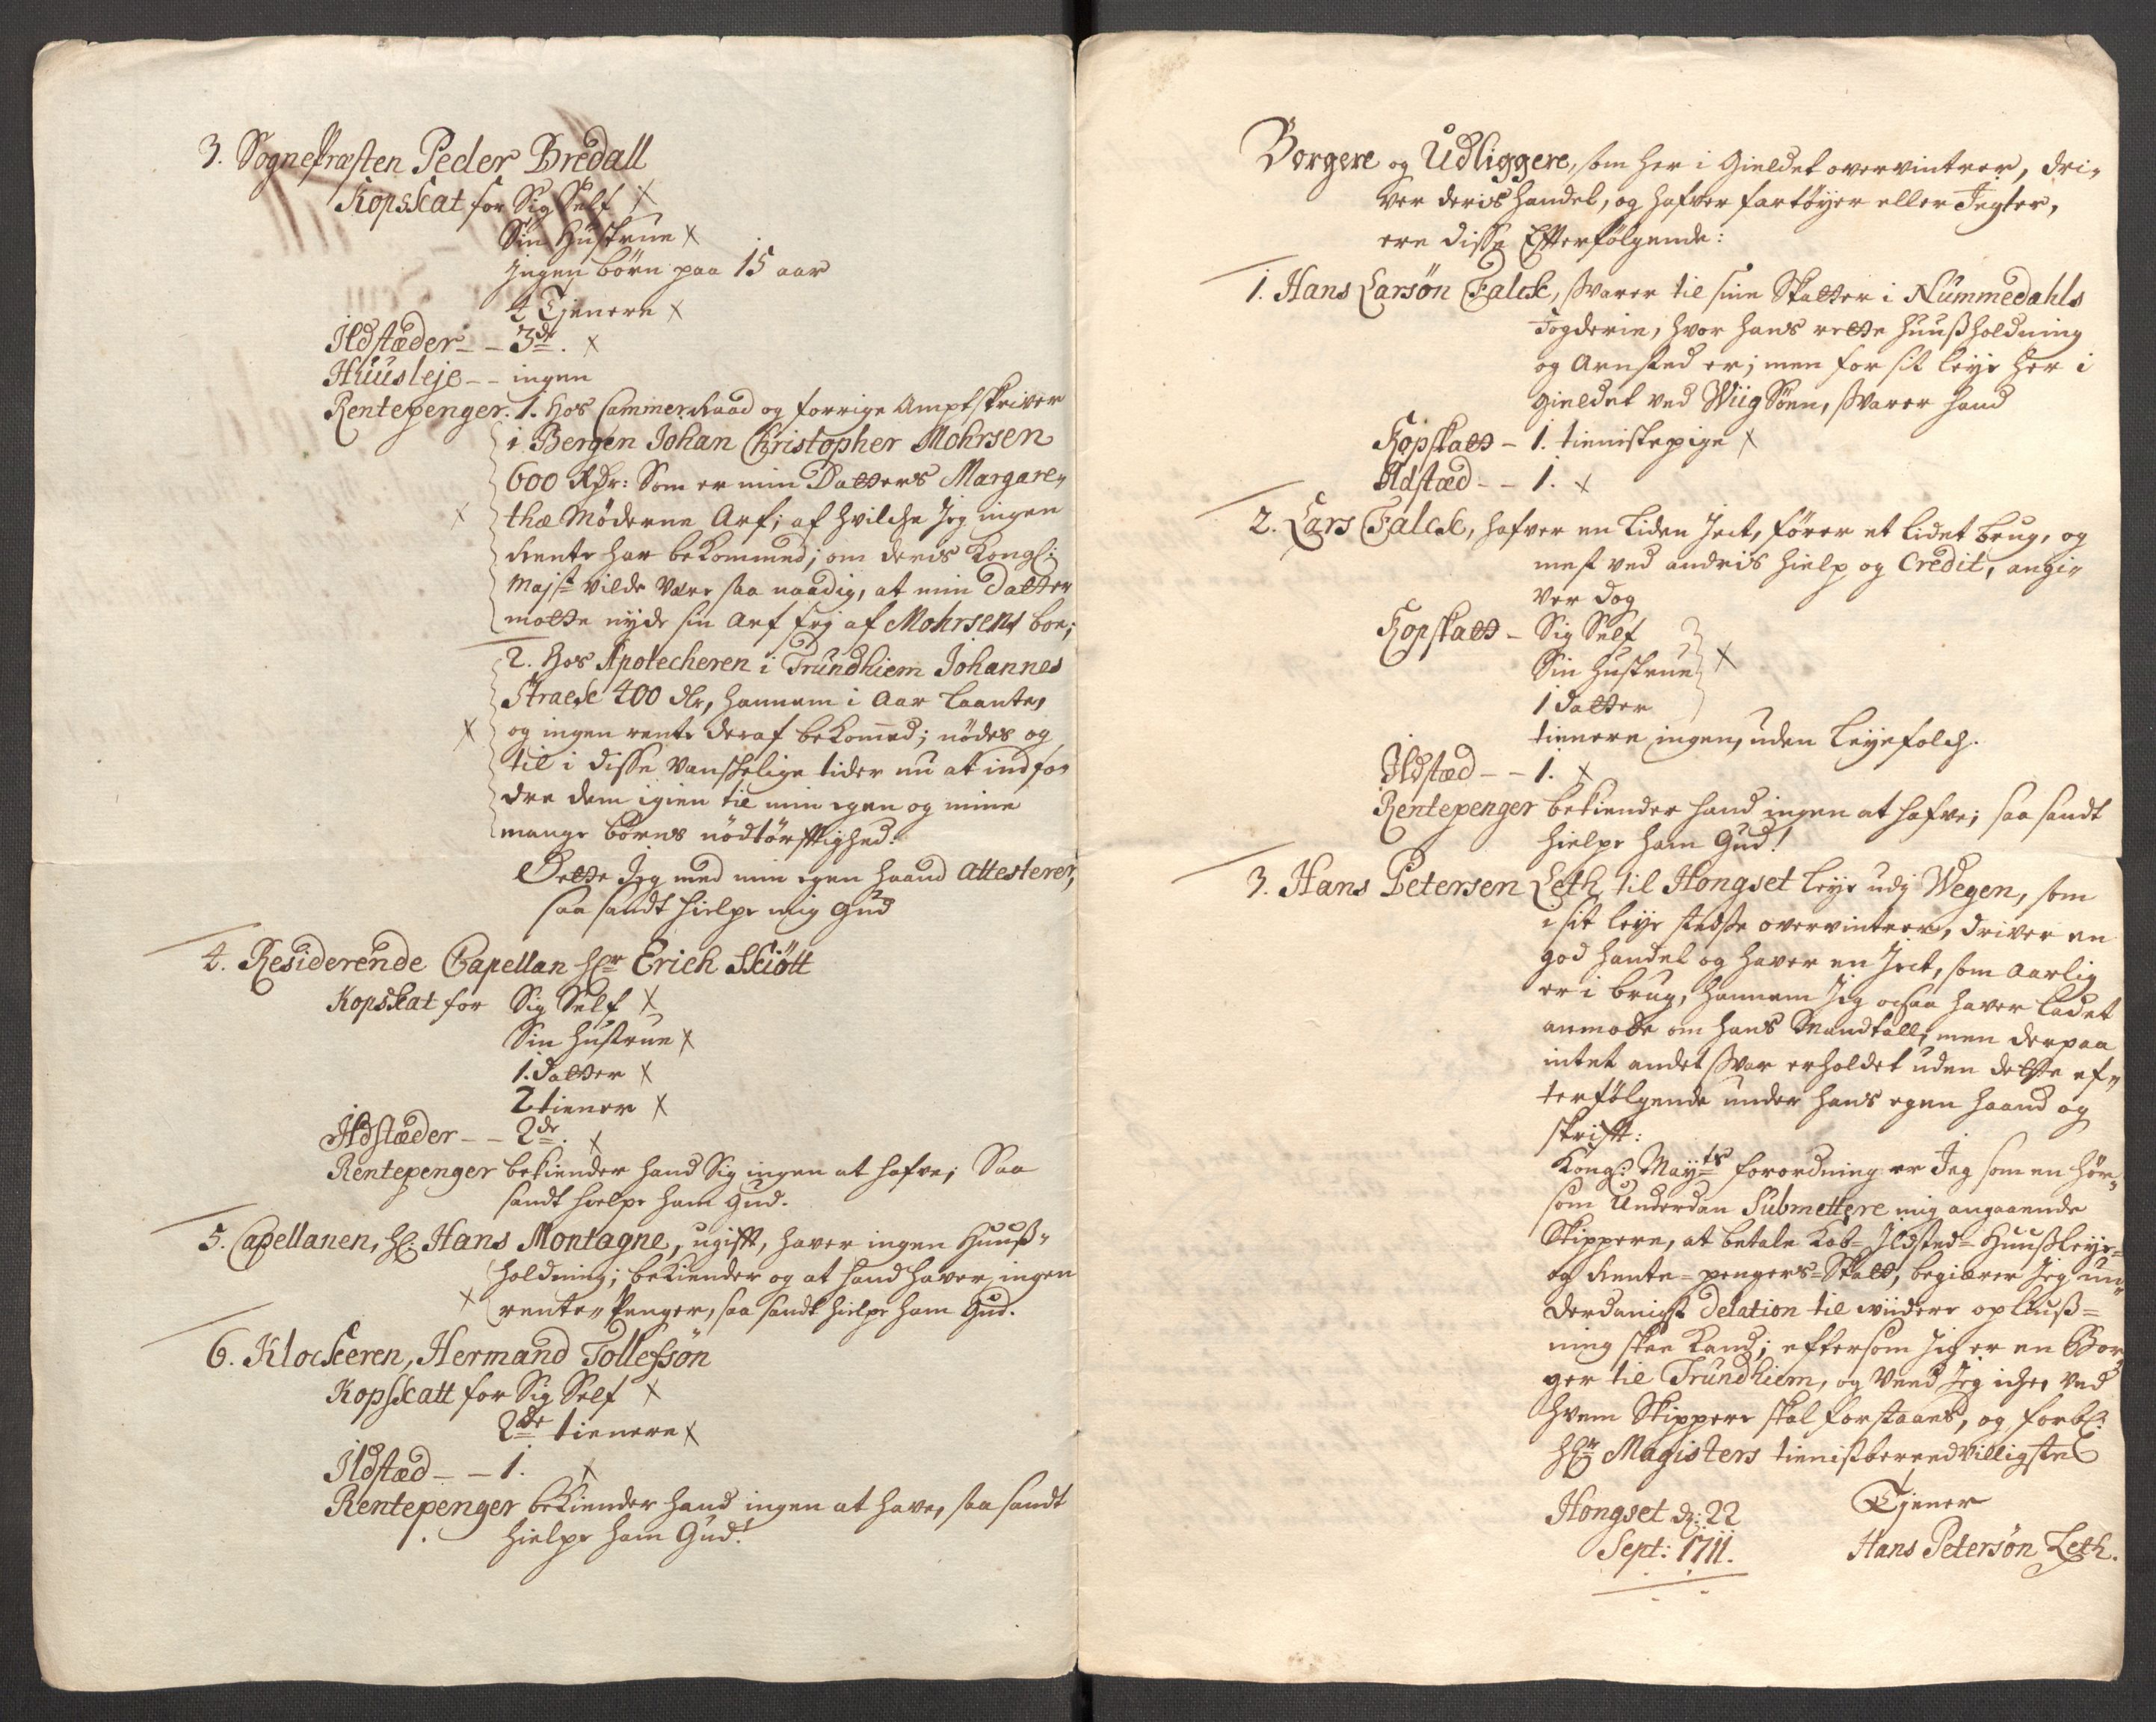 3. Sognepræsten Peder Bredall
Kopskat for Sig Self X
Sin Hustrue X
Ingen börn paa 15 aar
4 Tjenere X
Ildstæder - - 3de. X
Huusleje - - ingen
Rentepenger. 1. Hos CammerRaad og forrige Amptskriver
i Bergen Johan Christopher Mohrsen
600 Rdr: Som er min Datters Margare-
X thæ Möderne Arf; af hvilche Jeg ingen
Rente har bekommed; om deris Kongl:
Majst vilde være saa naadig, at min Datter
motte nyde sin Arf frj af Mohrsens boe;
2. Hos Apotecheren i Trundhiem Johannes
Straede 400 dlr, hannem i Aar laante,
X og ingen rente deraf bekomed; nödes og
til i disse vanskelige tider nu at indfor
dre dem igien til min egen og mine
mange börns nödtörfftighed.
Dette Jeg med min egen haand attesterer,
saa sandt hielpe mig Gud
4. Residerende Capellan Hr Erich Skiött
Kopskat for Sig Self X
Sin Hustrue X
1. Datter X
2 tiener X
Ildstæder - - 2de. X
Rentepenger bekiender hand Sig ingen at hafve; Saa
sandt hielpe ham Gud.
5. Capellanen, Hr: Hans Montagne, ugifft, haver ingen Huuß-
holdning; bekiender og at hand haver ingen
X rente-Penger, saa sandt hielpe ham Gud.
6. Klockeren, Hermand Tollefsön
Kopskatt for Sig Self X
2de tienere X
Ildstæd - - 1. X
Rentepenger bekiender hand ingen at have, saa sandt
hielpe ham Gud!
Borgere og Udliggere, som her i Gieldet overvintrer, dri-
ver deris handel, og hafver fartöyer eller Jegter,
ere disse Efterfölgende:
1. Hans Larsön Falck, svarer til sine Skatter i Nummedahls
Fogderie, hvor hans rette Huußholdning
og Arnsted er; men for sit leye her i
Gieldet ved Wiig Söen, svarer hand
Kopskatt - 1. tienistepige X
Ildstæd - - 1. X
2. Lars Falck, hafver en liden Ject, förer et lidet brug, og
mest ved andris hielp og Credit, angi-
ver dog
Kopskatt - Sig Self
Sin Hustrue X
1 datter
tienere ingen, uden leyefolch.
Ildstæd - - 1. X
Rentepenger bekiender hand ingen at hafve; saa sandt
hielpe ham Gud!
3. Hans Petersen Leth til Hongset leye udj Wegen, som
i sit leye stedse overvintrer, driver en
god handel og haver en Ject, som aarlig
er i brug, hannem Jeg ochsaa haver ladet
anmode om hans Mandtall; men derpaa
intet andet svar erholdet uden dette ef-
terfölgende under hans egen haand og
skrifft:
Kong: Mayts forordning er Jeg som en hör-
som Underdan Submettere mig angaaende
Skippere, at betale Kob- Ildsted- Huußleye-
og Rente-pengers-Skatt, begiærer Jeg un-
derdanigst delation til wiidere opliuß-
ning skee kand; eftersom Jeg er en Bor-
ger til Trundhiem, og Veed Jeg iche, ved
hvem Skippere skal forstaaes, og forbl:
Hr Magisters tienistbereedvilligste
Tjener
Hongset d: 22
Sept: 1711.
Hans Petersön Leth.